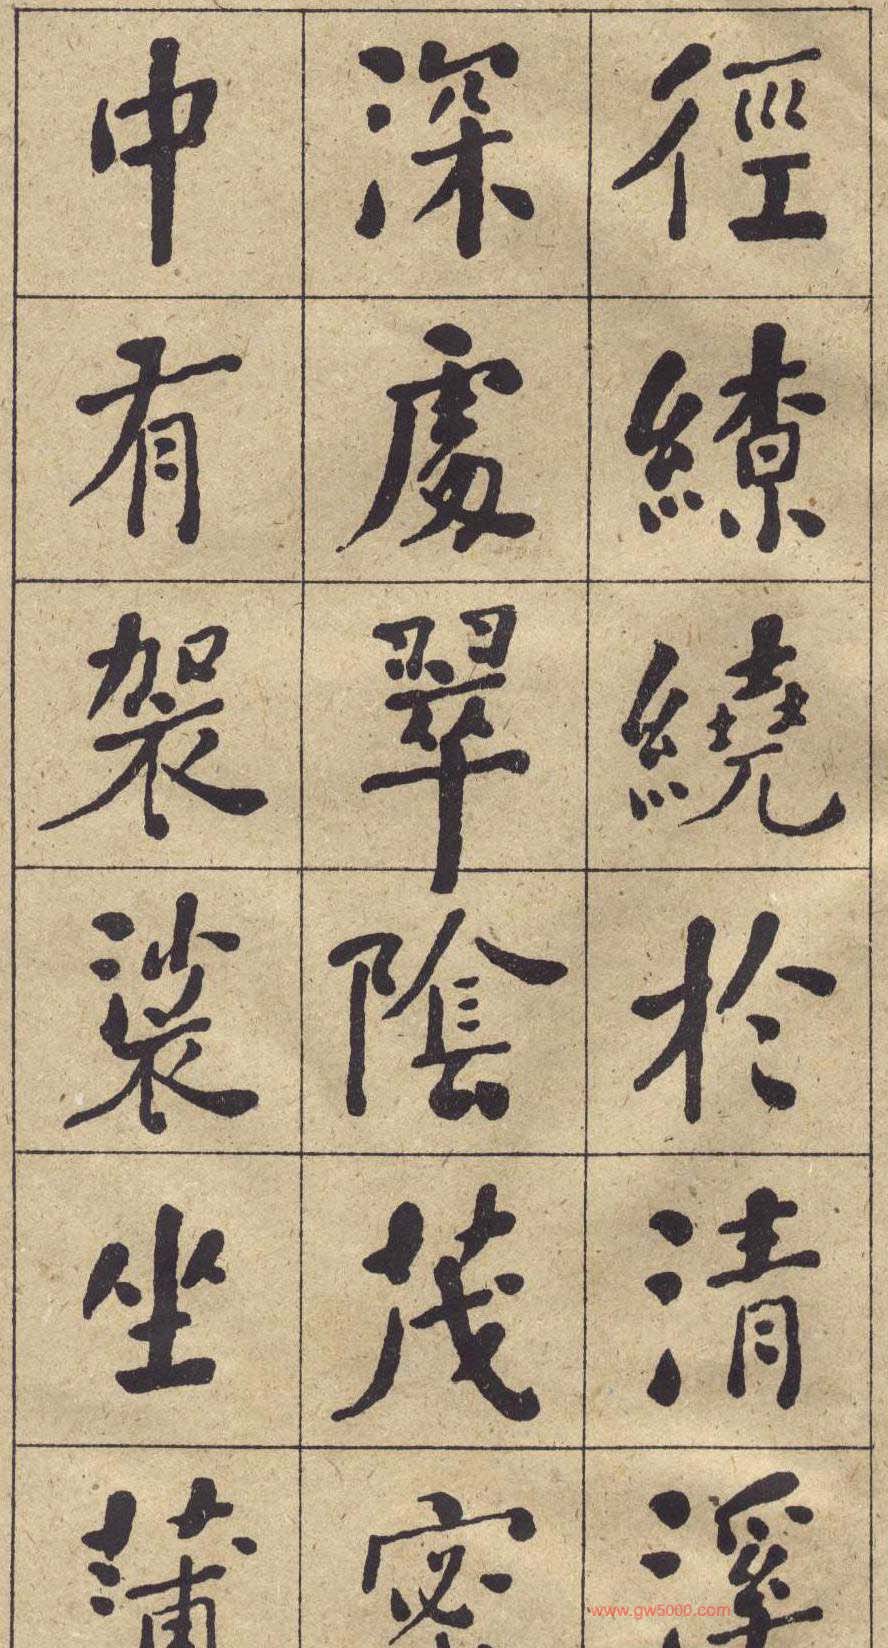 徑繚繞於清溪
深處翠陰茂密
中有袈裟坐蒲
www.gw5000.com